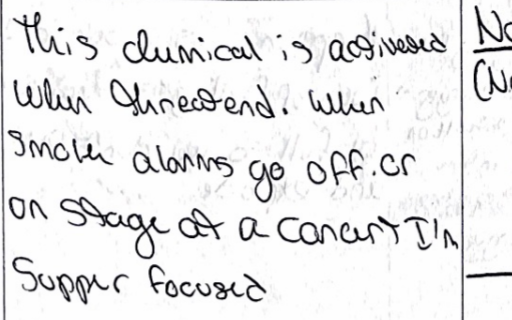 This chemical is activated
when threatend. when
smoke alarms go off. or
on stage at a concert I'm
Supper focused
No
(No